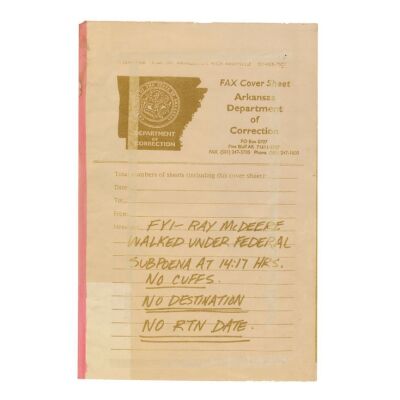 FAX Cover Sheet
Arkansas
Department
of
Correction
PO Box 8707
Pine Bluff AR
DEPARTMENT
OF
CORRECTION
Total numbers of sheets (including this cover sheet):
Date:
To:
From:
FYI- RAY McDEERE
WALKED UNDER FEDERAL
SUBPOENA AT 14:17 HRS.
NO CUFFS.
NO DESTINATION
NO RTN DATE.